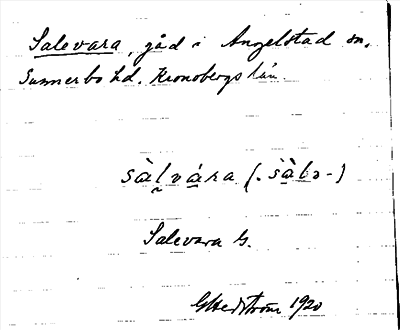 Salevara, gåd i Angelstad sn,
Sunnerbo hd. Kronobergs län.
sàl̰vára (. sàlə-)
Salevara G.
G Hedström 1920